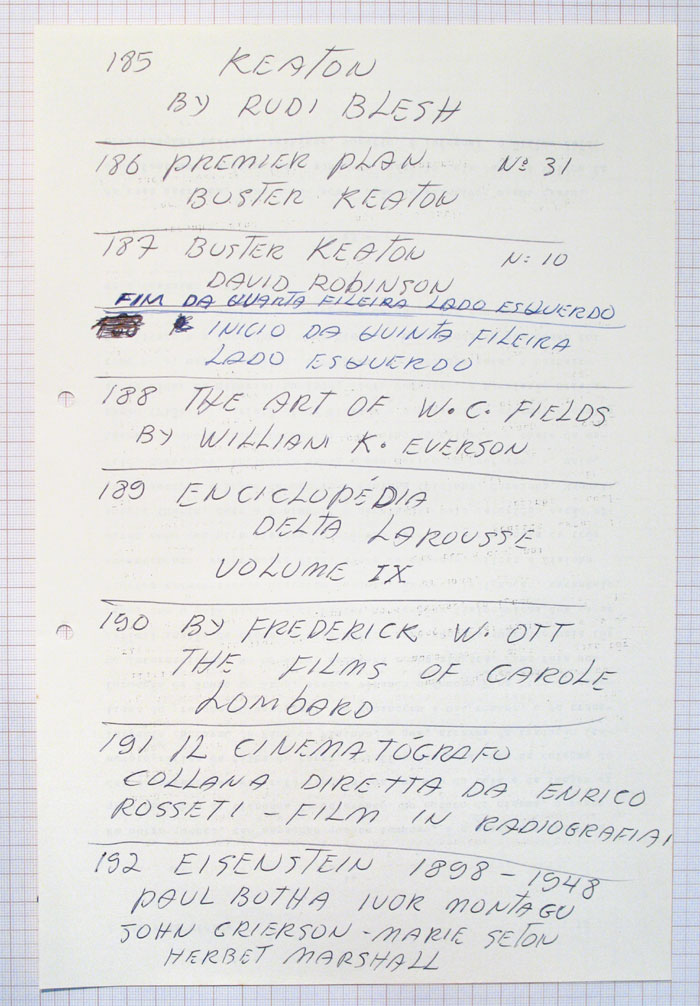 185 KEATON
BY RUDI BLESH
186 PREMIER PLAN Nº 31
BUSTER KEATON
187 BUSTER KEATON N: 10
DAVID ROBINSON
FIM DA QUARTA FILEIRA LADO ESQUERDO
INICIO DA QUINTA FILEIRA
LADO ESQUERDO
188 THE ART OF W.C. FIELDS
BY WILLIAN K. EVERSON
189 ENCICLOPÉDIA
DELTA LAROUSSE
VOLUME IX
190 BY FREDERICK W. OTT
THE FILMS OF CAROLE
LOMBARD
191 IL CINEMATOGRAFO
COLLANA DIRETTA DA ENRICO
ROSSETI - FILM IN RADIOGRAFIA
192 EISENSTEIN 1898 - 1948
PAUL BOTHA IVOR MONTAGU
JOHN GRIERSON - MARIE SETON
HERBET MARSHALL